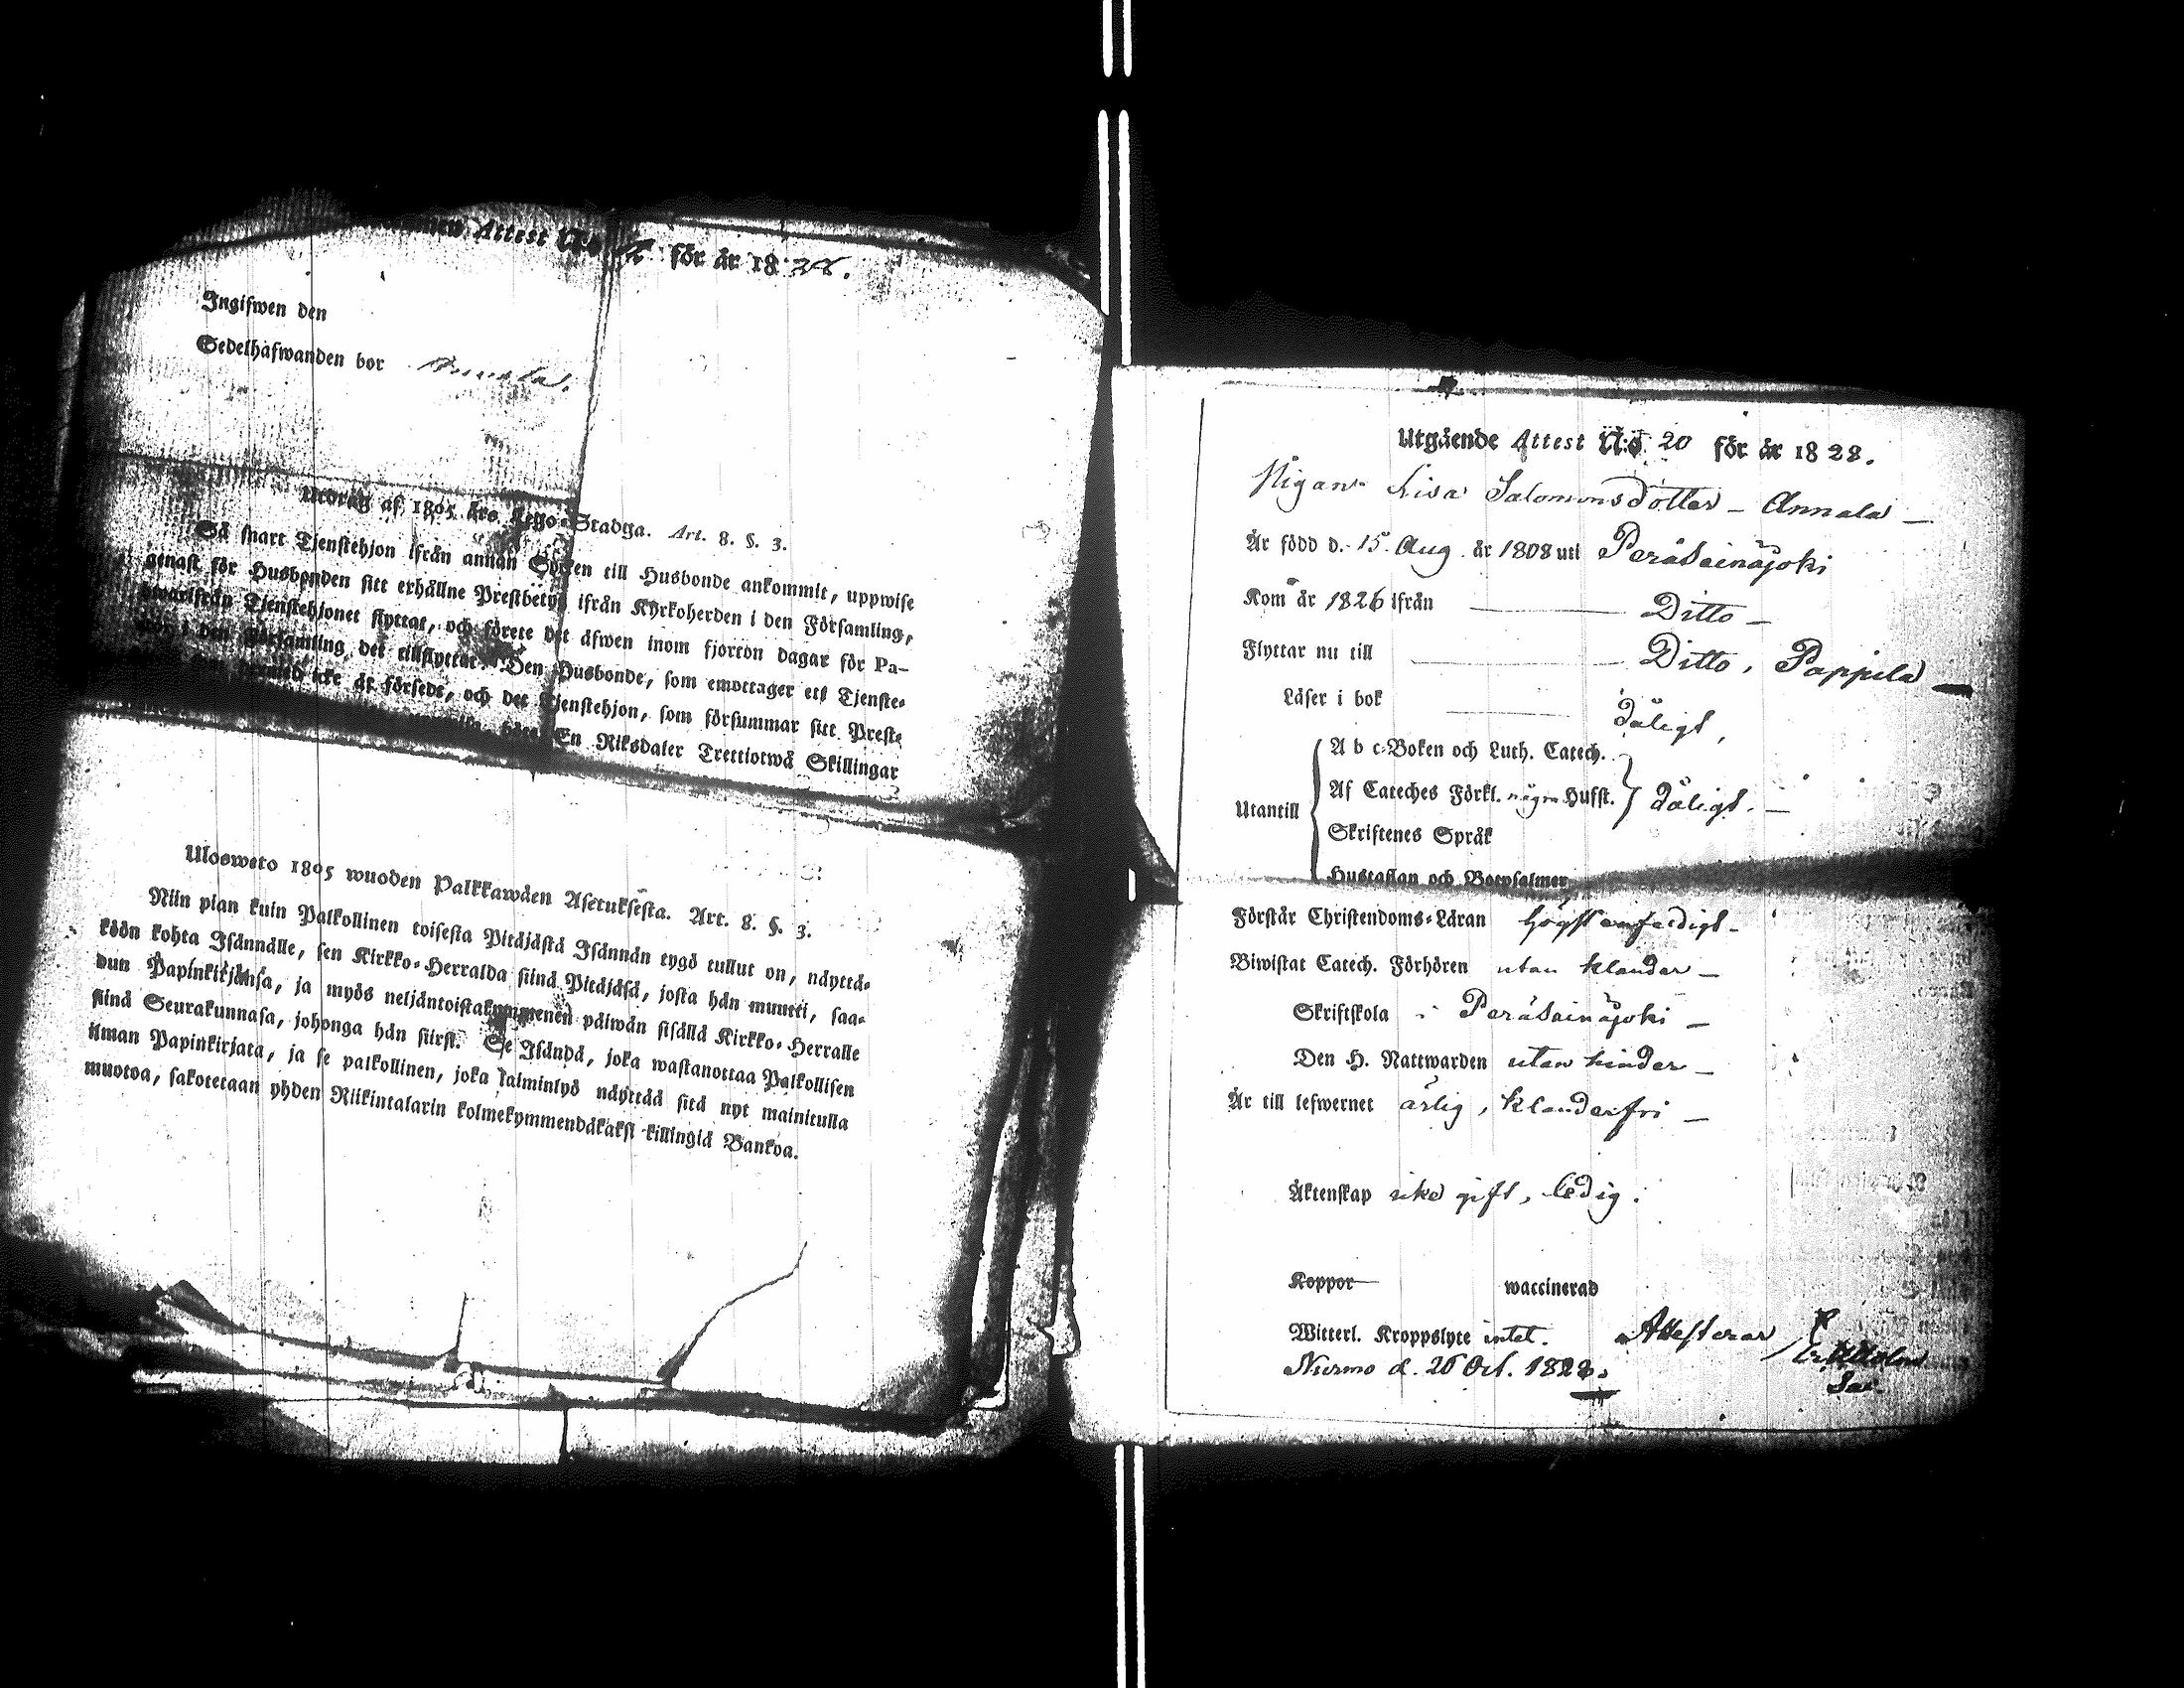 Attest N:o för år 1828.
Ingifwen den
Sedelhafwanden bor
Utdrag af 1805 års Lego-Stadga. Art. 8. §. 3.
Så snart Tjenstehjon ifrån annan Socken till Husbonde ankommit, uppwise
genast för Husbonden sitt erhållne Prestbetyg ifrån Kyrkoherden i den Församling,
hwarifrån Tjenstehjonet flyttat, och förete det äfwen inom fjorton dagar för Pa-
stor i den Församling det tillflyttat. Den Husbonde, som emottager ett Tjenste-
icke är försedt, och det Tjenstehjon, som försummar sitt Preste
En Riksdaler Trettiotwå Skillingar
Ulosweto 1805 wuoden Palkkawäen Asetuksesta. Art. 8. §. 3.
Niin pian kuin Palkollinen toisesta Pitäjästä Isännän tygö tullut on, näyttä-
köön kohta Isännälle, sen Kirkko-Herralda siinä Pitäjäsä, josta hän muutti, saa-
dun Papinkirjansa, ja myös neljäntoistakymmenen päiwän sisällä Kirkko-Herralle
siinä Seurakunnasa, johonga hän siirsi. Se Isändä, joka wastanottaa Palkollisen
ilman Papinkirjata, ja se palkollinen, joka laiminlyö näyttää sitä nyt mainitulla
muotoa, sakotetaan yhden Riikintalarin kolmekymmendäkaksi killingiä Bankoa.
Utgående Attest N:o 20 för år 1828.
Pigan Lisa Salomonsdotter - Annala -
Är född d. 15 Aug. år 1808 uti Peräseinäjoki
Kom år 1826 ifrån Ditto -
Flyttar nu till Ditto, Pappila -
Läser i bok dåligt,
A b c-Boken och Luth. Catech.
Utantill Af Cateches Förkl. några Hufst. dåligt. -
Skriftenes Språk
Hustaflan och Botpsalmer
Förstår Christendoms-Läran högst enfaldigt -
Biwistat Catech. Förhören utan klander -
Skriftskola i Peräseinäjoki -
Den H. Nattwarden utan hinder -
Är till lefwernet ärlig, klanderfri -
Äktenskap icke gift, ledig.
Koppor waccinerad
Witterl. Kroppslyte intet. Attesterar
Nurmo d. 26 Oct. 1828.